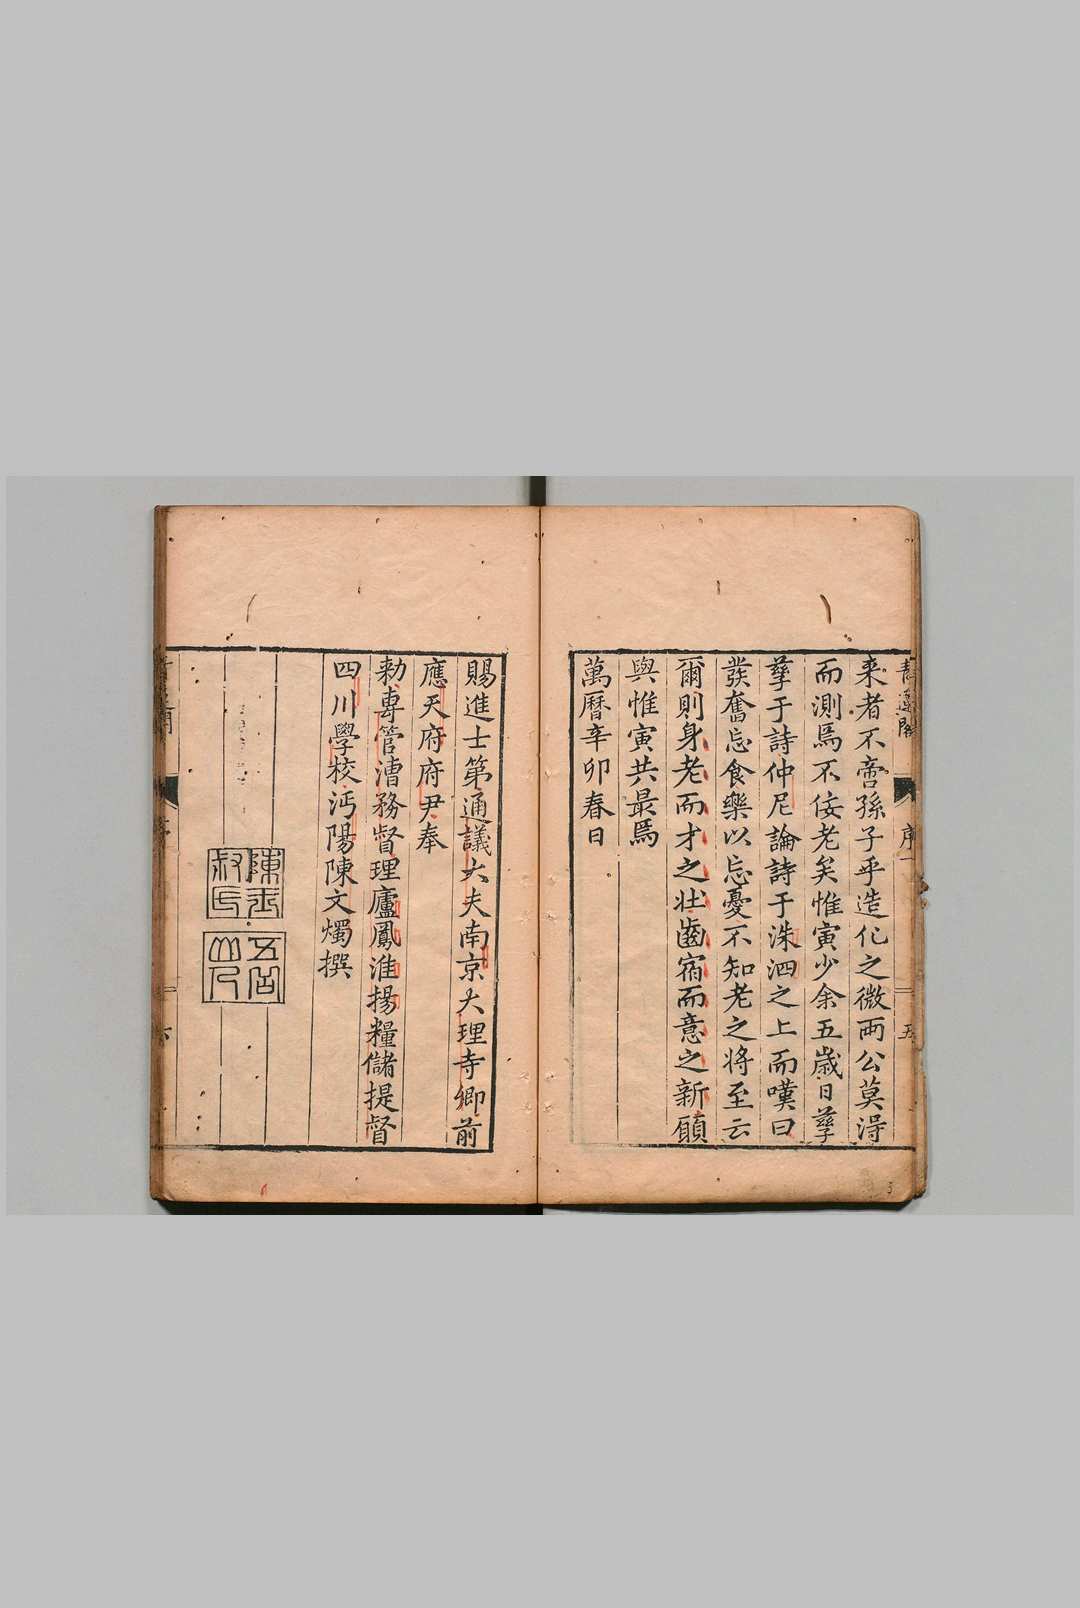 来者不啻孫子乎造化之微兩公莫淂
而測焉不佞老矣惟寅少余五歲日孳
孳于詩仲尼論詩于洙泗之上而嘆曰
發奮忘食樂以忘憂不知老之將至云
爾則身老而才之壯齒宿而意之新願
與惟寅共最焉
萬曆辛卯春日
序一
五
賜進士第通議大夫南京大理寺卿前
應天府府尹奉
勅專管漕務督理廬鳳淮揚糧儲提督
四川學校沔陽陳文燭撰
陳玉叔氏
五岳山人